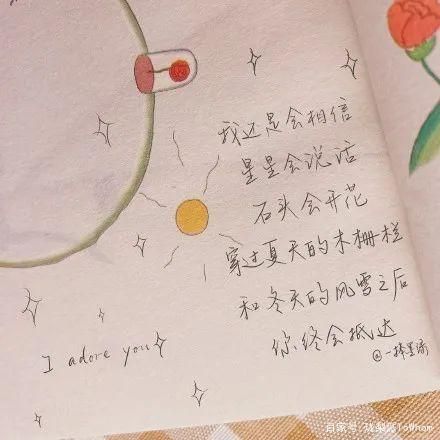 我还是会相信
星星会说话
石头会开花
穿过夏天的木栅栏
和冬天的风雪之后
你终会抵达
I adore you